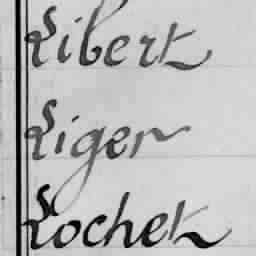 Libert
Liger
Lochet